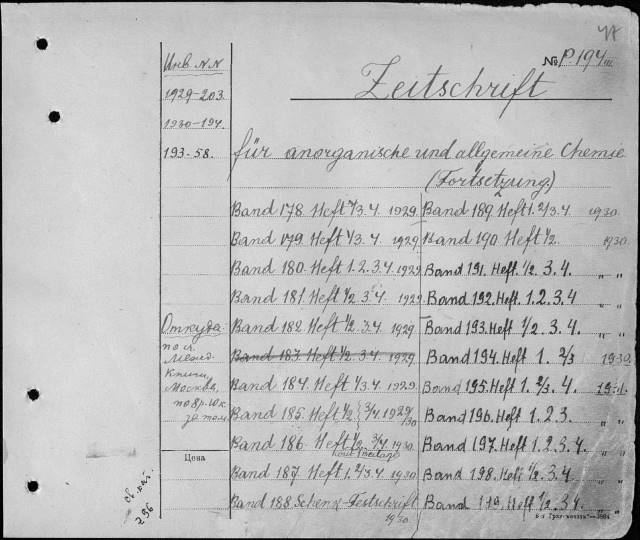 УА
Инв. NN
№ P.194 III
1929-203.
Zeitschrift
1930-194.
193-58.
für anorganische und allgemeine Chemie
(Fortsetzung)
Band 178. Heft 1/3.4. 1929. Band 189. Heft 1.2/3.4 1930.
Band 179. Heft 1/3.4. 1929. Band 190. Heft 1/2. 1930.
Band 180. Heft 1.2.3.4. 1929. Band 191. Heft. 1/2 3.4. " "
Band 181. Heft 1/2 3.4. 1929. Band 192. Heft 1.2.3.4 " "
Откуда Band 182. Heft 1/2. 3.4. 1929 Band 193. Heft 1/2 3.4. " "
Band 183. Heft 1/2. 3.4. 1929. Band 194. Heft 1. 2/3 1930
Книги, Band 184. Heft 1/3.4. 1929. Band 195. Heft 1. 2/3. 4. 1931.
Москва, Band 185. Heft 1/2 } 3/4 1929/30 Band 196. Heft 1.2.3. " "
Band 186. Heft 1/2. 3/4 1930 Band 197. Heft 1.2.3.4. " "
Цена Band 187 Heft 1.2/3.4. 1930 Band 198. Heft 1/2. 3.4. " "
Band 188. Schenk-Festschrift 1930 Band 199. Heft 1/2. 3.4. " "
296